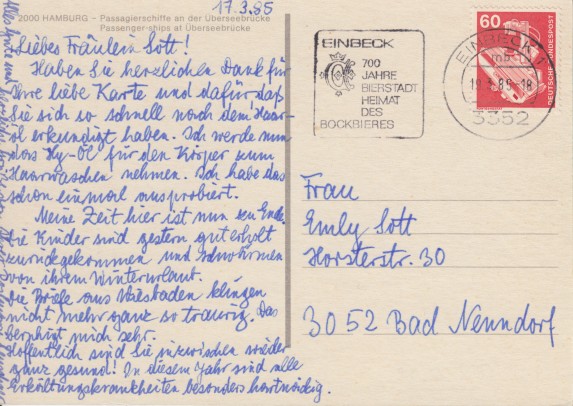 17.3.85
2000 HAMBURG – Passagierschiffe an der Überseebrücke
Passenger-ships at Überseebrücke
Liebes Fräulein Sott!
Haben Sie herzlichen Dank für
Ihre liebe Karte und dafür, daß
Sie sich so schnell nach dem Haar-
öl erkundigt haben. Ich werde nun
das Hy-Öl für den Körper zum
Haarwaschen nehmen. Ich habe das
schon einmal ausprobiert.
Meine Zeit hier ist nun zu Ende.
Die Kinder sind gestern gut erholt
zurückgekommen und schwärmen
von ihrem Winterurlaut.
Die Briefe aus Wiesbaden klingen
nicht mehr ganz so traurig. Das
beruhigt mich sehr.
Hoffentlich sind Sie inzwischen wieder
ganz gesund! In diesem Jahr sind alle
Erkältungskrankheiten besonders hartnäckig.
Alles Gute und
EINBECK
700
JAHRE
BIERSTADT
HEIMAT
DES
BOCKBIERES
EINBECK 1
mb
-18
3352
60
DEUTSCHE BUNDESPOST
Frau
Emily Sott
Horsterstr. 30
3052 Bad Nenndorf